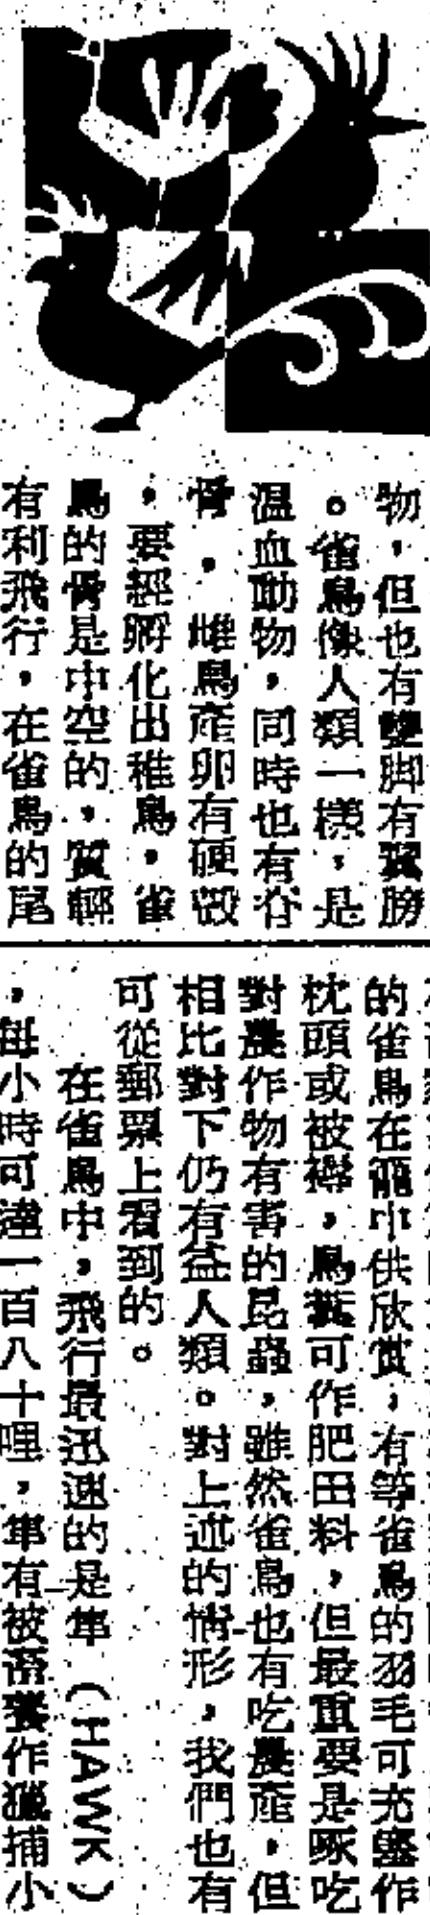 物，但也有雙脚有翼膀
。雀鳥像人類一樣，是
温血動物，同時也有脊
骨，雌鳥產卵有硬殼
，要經孵化出稚鳥，雀
鳥的骨是中空的，質輕
有利飛行，在雀鳥的尾
的雀鳥在籠中供欣賞，有等雀鳥的羽毛可充塞作
枕頭或被褥，鳥糞可作肥田料，但最重要是啄吃
對農作物有害的昆蟲，雖然雀鳥也有吃農產，但
相比對下仍有益人類。對上述的情形，我們也有
可從郵票上看到的。
在雀鳥中，飛行最迅速的是隼（HAWK）
，每小時可達一百八十哩，隼有被畜養作獵捕小